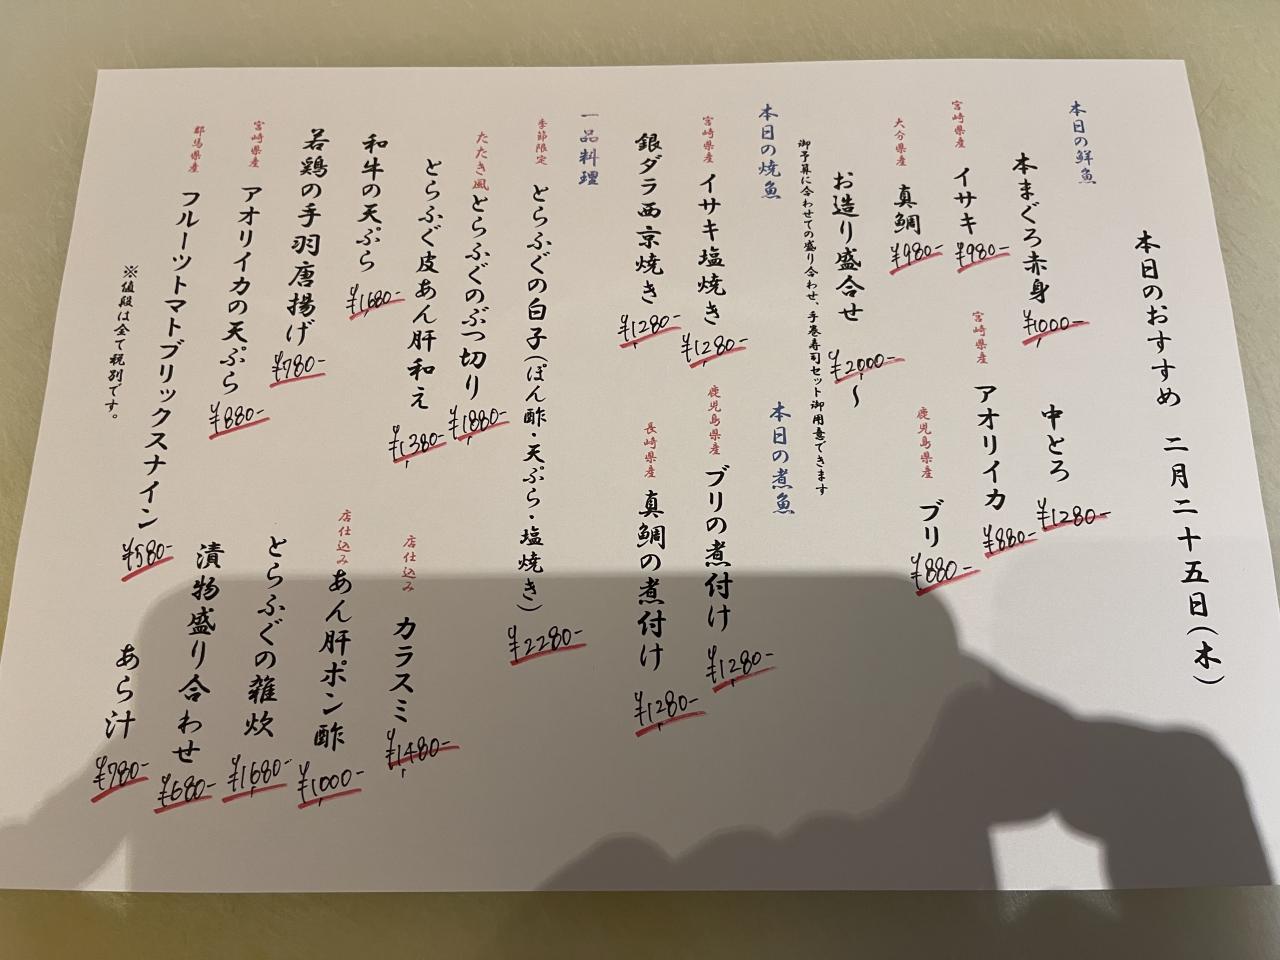 本日のおすすめ 二月二十五日(木)
本日の鮮魚
本まぐろ赤身 ¥1,000-
中とろ ¥1280-
宮崎県産 イサキ ¥980-
宮崎県産 アオリイカ ¥880-
大分県産 真鯛 ¥980-
鹿児島県産 ブリ ¥880-
お造り盛合せ ¥2,000-〜
御予算に合わせての盛り合わせ、手巻寿司セット御用意できます
本日の焼魚
宮崎県産 イサキ塩焼き ¥1,280-
銀ダラ西京焼き ¥1,280-
本日の煮魚
鹿児島県産 ブリの煮付け ¥1,280-
長崎県産 真鯛の煮付け ¥1,280-
一品料理
季節限定 とらふぐの白子(ぽん酢・天ぷら・塩焼き) ¥2280-
たたき風 とらふぐのぶつ切り ¥1,880-
とらふぐ皮あん肝和え ¥1,380-
店仕込み カラスミ ¥1,480-
和牛の天ぷら ¥1,680-
店仕込み あん肝ポン酢 ¥1,000-
若鶏の手羽唐揚げ ¥780-
とらふぐの雑炊 ¥1,680-
宮崎県産 アオリイカの天ぷら ¥880-
漬物盛り合わせ ¥680-
群馬県産 フルーツトマトブリックスナイン ¥580-
あら汁 ¥780-
※値段は全て税別です。